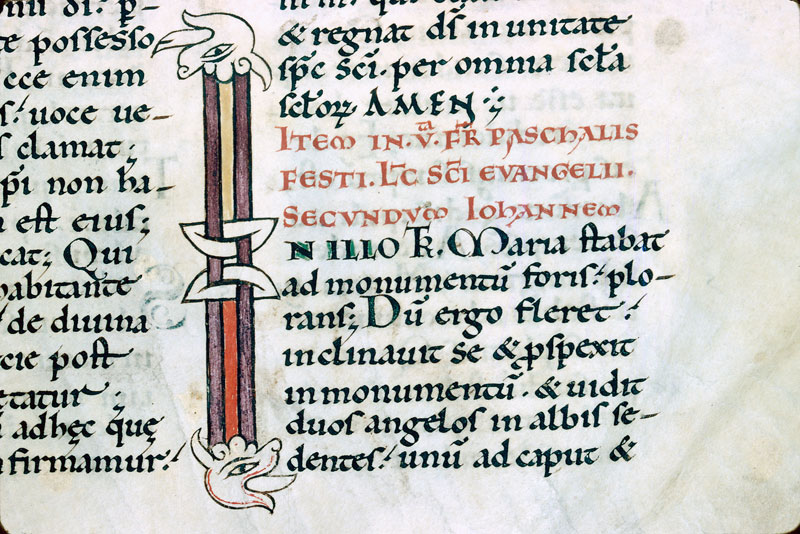 te possesso
cce enim
s. uoce ue-
s clamat;
pi non ha-
n est eius;
cat; Qui
habitante
de diuina
cie post
ętatur;
adhęc quę
nfirmamur.
& regnat ds̄ in unitate
spc̄ scī. per omnia scła
scłorꝝ AMEN
ITEM IN V. FR PASCHALIS
FESTI. LC̄ SCĪ EVANGELII.
SECVNDVM IOHANNEM
IN ILLO TR̄. Maria stabat
ad monumentū foris. plo-
rans; Dū ergo fleret.
inclinauit se & ꝓspexit
in monumentū. & uidit
duos angelos in albis se-
dentes. unū ad caput &